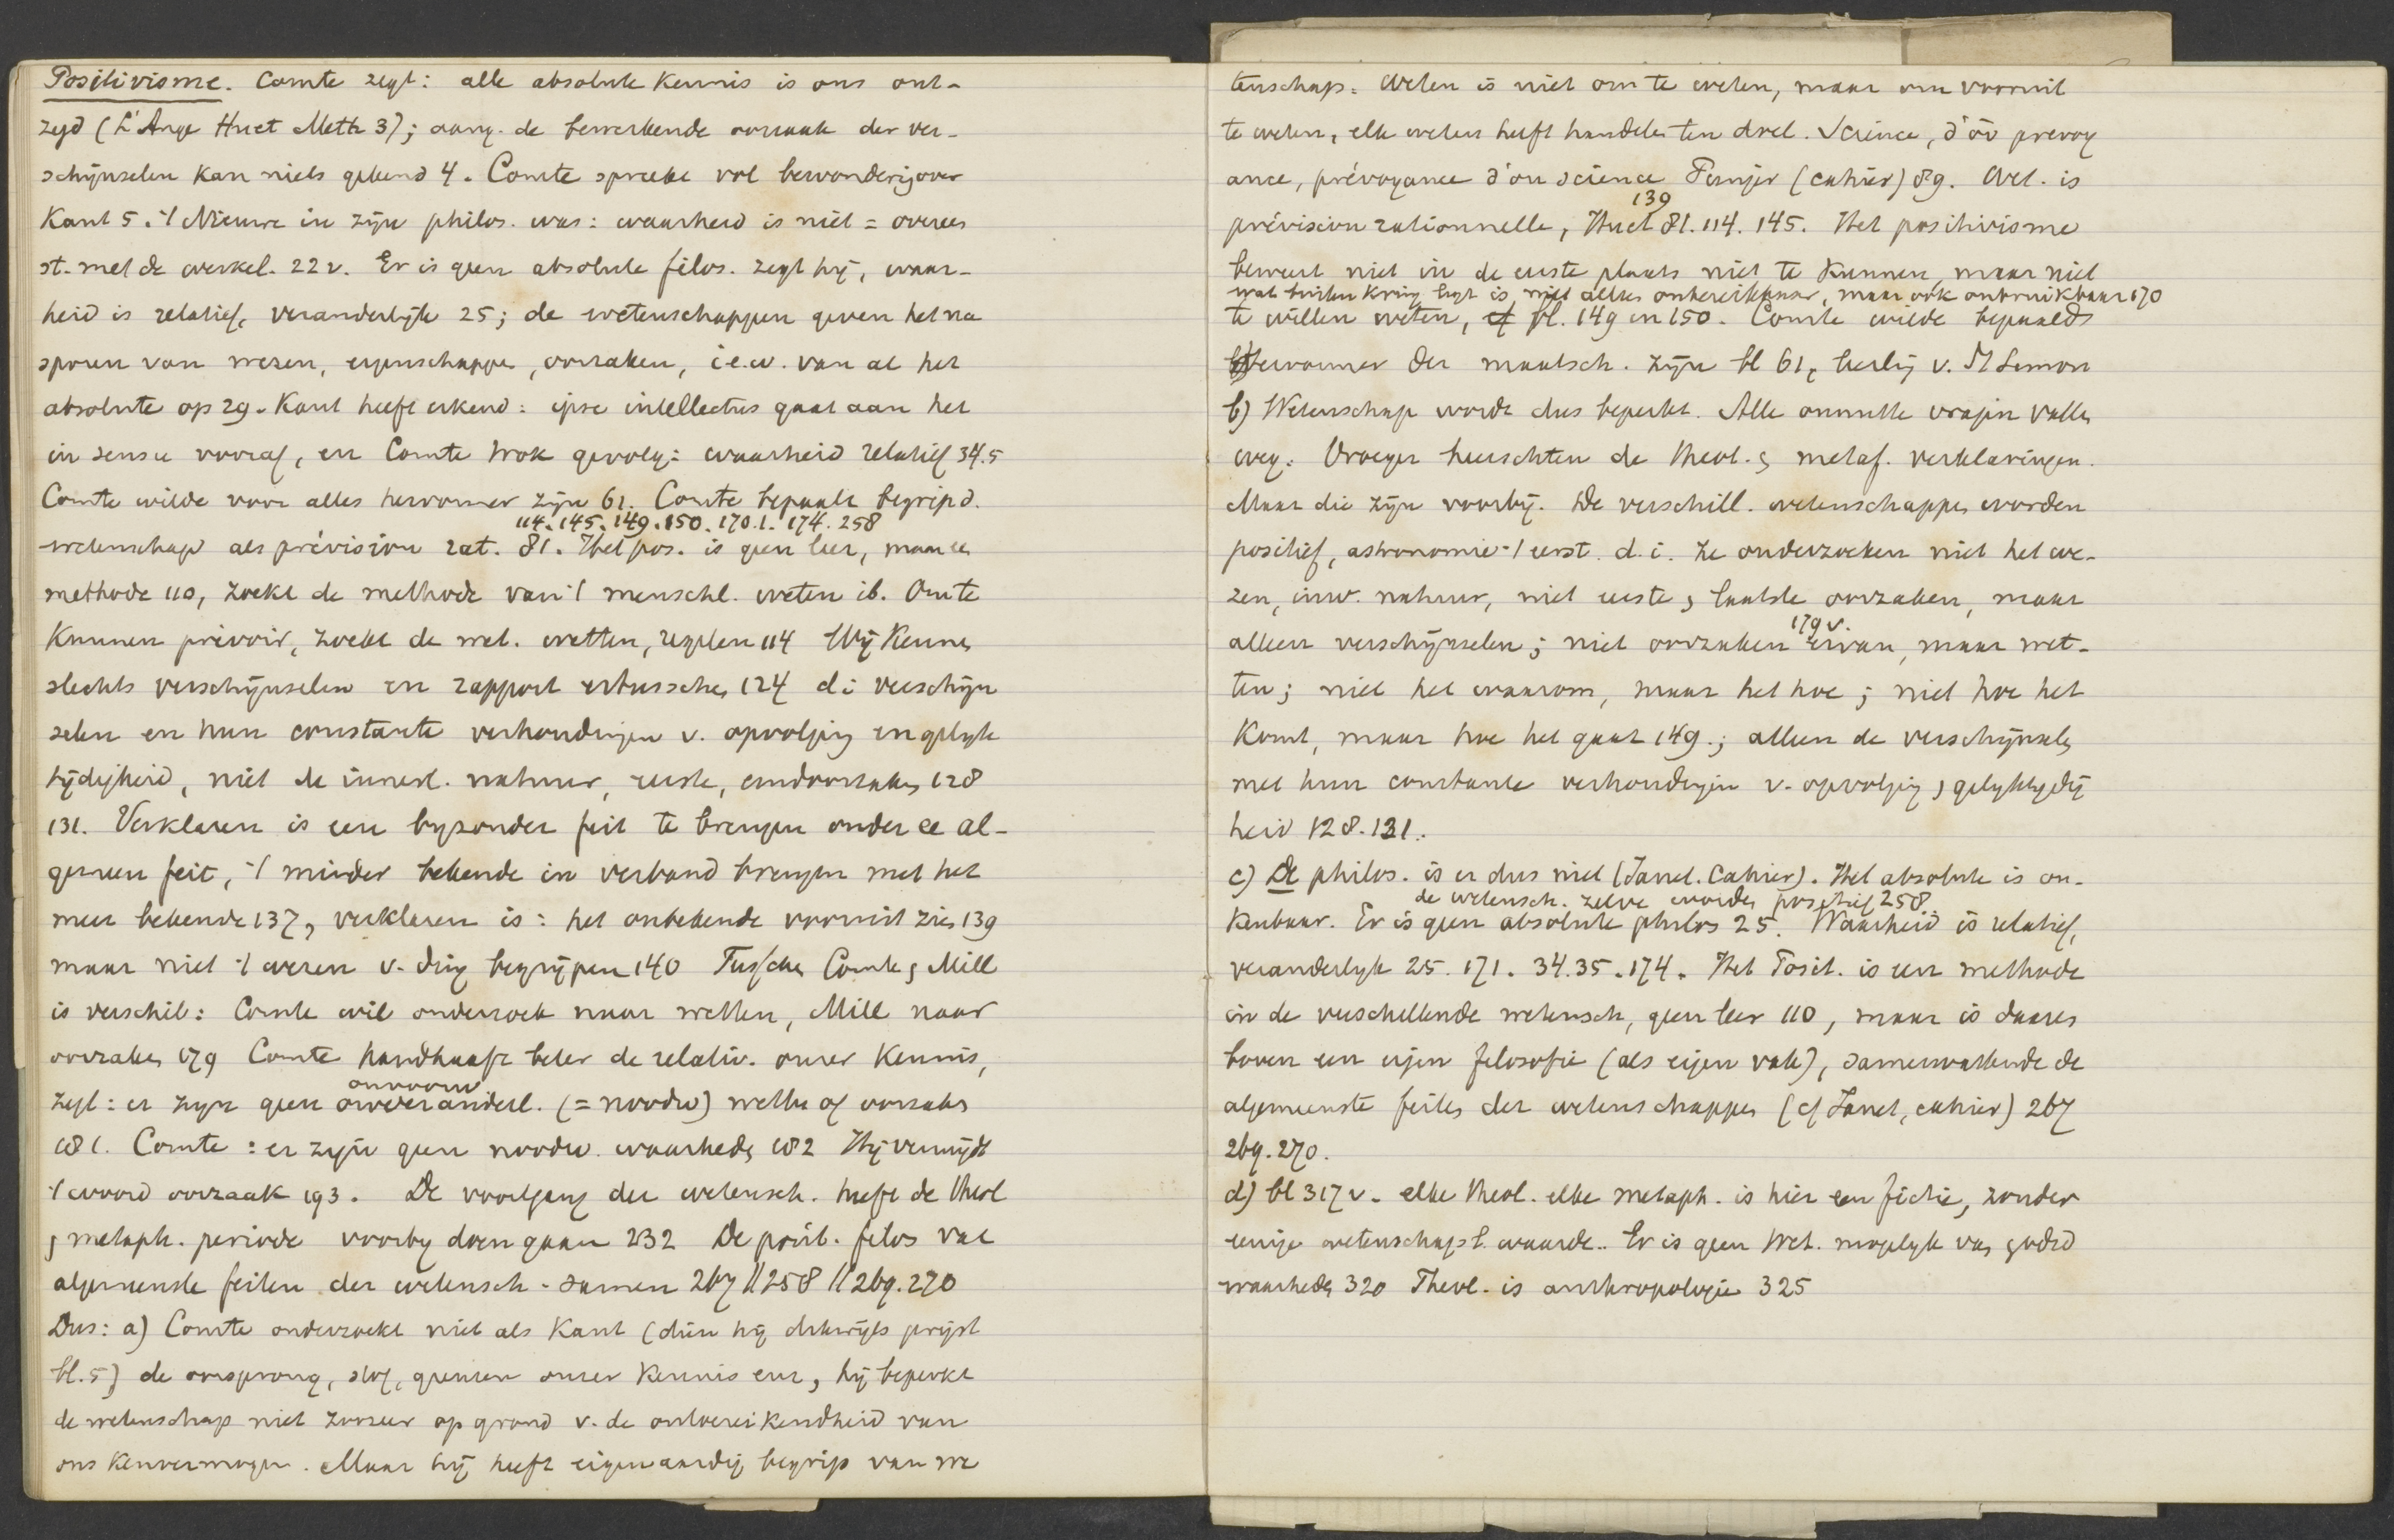 Positivisme. Comte zegt: alle absolute kennis is ons ont-
zegd (L'Ange Huet Meth 3); aang. de bewerkende oorzaak der ver-
schijnselen kan niets gekend 4. Comte spreekt vol bewondering over
Kant 5. 't Nieuwe in zijn philos. was: waarheid is niet = overeen
st. met de werkel. 22v. Er is geen absolute filos. zegt hij, waar-
heid is relatief, veranderlijk 25; de wetenschappen geven het na
sporen van wezen, eigenschappen, oorzaken, i.e.w. van al het
absolute op 29. Kant heeft erkend: ipse intellectus gaat aan het
in sensu vooraf, en Comte trok gevolg: waarheid relatief 34.5
Comte wilde voor alles hervormer zijn 61. Comte bepaalt begrip d.
114. 145. 149. 150. 170.1. 174. 258
wetenschap als prévision rat. 81. Het pos. is geen leer, maar ee
methode 110, zoekt de methode van 't menschl. weten ib. Om te
kunnen prévoir, zoekt de wet. wetten, regelen 114 Wij kennen
slechts verschijnselen en rapport ertusschen 124 d i verschijn
selen en hun constante verhoudingen v. opvolging en gelijk
tijdigheid, niet de innerl. natuur, eerste, eindoorzaken 128
131. Verklaren is een bijzonder feit te brengen onder ee al-
gemeen feit, 't minder bekende in verband brengen met het
meer bekende 137, verklaren is: het onbekende vooruit zien 139
maar niet 't wezen v. ding begrijpen 140 Tusschen Comte & Mill
is verschil: Comte wil onderzoek naar wetten, Mill naar
oorzaken 179 Comte handhaaft beter de relativ. onzer kennis,
onvoorw.
zegt: er zijn geen onveranderl. (= noodw) wetten of oorzaken
181. Comte: er zijn geen noodw. waarheden 182 Hij vermijdt
't woord oorzaak 193. De voortgang der wetensch. heeft de theol
& metaph. periode voorbij doen gaan 232 De posit. filos vat
algemeenste feiten der wetensch. samen 267 // 258 // 269. 270
Dus: a) Comte onderzoekt niet als Kant (dien hij dikwijls prijst
bl. 5) de oorsprong, stof, grenzen onzer kennis enz, hij beperkt
de wetenschap niet zoozeer op grond v. de ontoereikendheid van
ons kenvermogen. Maar hij heeft eigenaardig begrip van we
tenschap. Weten is niet om te weten, maar om vooruit
te weten, elk weten heeft handelen ten doel. Science, d'où prévoy
ance, prévoyance d'où science (cahier) 89. Wet. is
139
prévision rationnelle, Huet 81. 114. 145. Het positivisme
beweert niet in de eerste plaats niet te kunnen, maar niet
wat buiten kring ligt is, niet alleen onbereikbaar, maar ook onbruikbaar 170
te willen weten, cf bl. 149 en 150. Comte wilde bepaald
hervormer der maatsch. zijn bl 61, leerling v. St Simon
b) Wetenschap wordt dus beperkt. Alle onnutte vragen vallen
weg. Vroeger heerschten de theol. & metaf. verklaringen.
Maar die zijn voorbij. De verschill. wetenschappen worden
positief, astronomie 't eerst. d. i. ze onderzoeken niet het we-
zen, inw. natuur, niet eerste & laatste oorzaken, maar
179 v.
alleen verschijnselen; niet oorzaken ervan, maar wet-
ten; niet het waarom, maar het hoe; niet hoe het
komt, maar hoe het gaat 149.; alleen de verschijnselen
met hun constante verhoudingen v. opvolging & gelijktijdig
heid 128. 131.
c) De philos. is er dus niet (Janet. Cahier). Het absolute is on-
de wetensch. zelve worden positief 258.
kenbaar. Er is geen absolute philos 25. Waarheid is relatief,
veranderlijk 25. 171. 34. 35. 174. Het Posit. is een methode
in de verschillende wetensch, geen leer 110, maar is daaren
boven een eigen filosofie (als eigen vak), samenvattende de
algemeenste feiten der wetenschappen (cf Janet, cahier) 267
269. 270.
d) bl 317 v. elke theol. elke metaph. is hier een fictie, zonder
eenige wetenschapl. waarde. Er is geen wet. mogelijk van godsd
waarheden 320 Theol. is anthropologie 325